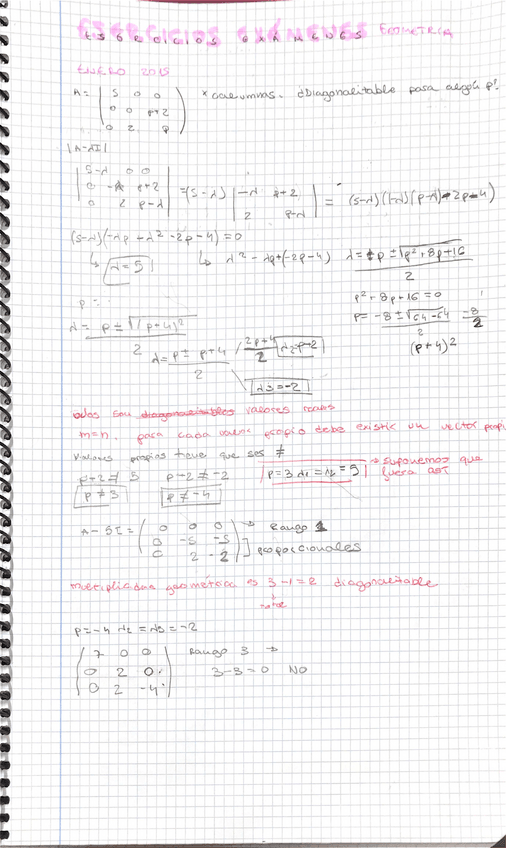 EJERCICIOS EXÁMENES GEOMETRÍA
ENERO 2015
A = ( 5 0 0
0 0 p+2
0 2 p )
¿Diagonalizable para algún p?
|A-λI|
| 5-λ 0 0
0 -λ p+2
0 2 p-λ | = (5-λ) | -λ p+2
2 p-λ | = (5-λ)(-λ)(p-λ)-2p-4)
(5-λ)(-λp+λ²-2p-4)=0
λ=5
λ²-λp+(-2p-4) λ = p ± √p²+8p+16
2
p²+8p+16=0
p = -8 ± √64-64
2
-8
2
(p+4)²
p =
λ = p ± √(p+4)²
2
λ = p ± p+4
2
2p+4
2
λ2=p+2
λ3=-2
todos son diagonalizables valores reales
m=n. para cada valor propio debe existir un vector propio
Valores propios tiene que ser ≠
p+2 ≠ 5 p+2 ≠ -2
p ≠ 3 p ≠ -4
p=3 λ1=λ2=5 → suponemos que
fuera así
A-5I = ( 0 0 0
0 -5 -5
0 2 -2 )
→ Rango 1
proporcionales
multiplicidad geométrica es 3-1=2 diagonalizable
p=-4 λ2=λ3=-2
( 7 0 0
0 2 0
0 2 -4 )
Rango 3 →
3-3=0 NO